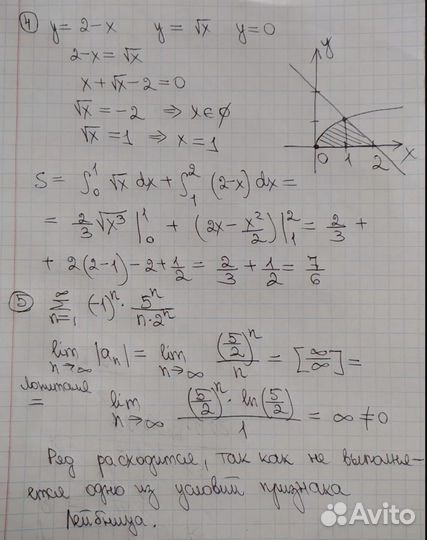 ④ y = 2-x   y = √x   y = 0
2-x = √x
x + √x - 2 = 0
√x = -2 ⇒ x ∈ ∅
√x = 1 ⇒ x = 1
y
0 1 2 x
S = ∫₀¹ √x dx + ∫₁² (2-x) dx =
= 2/3 √x³ |₀¹ + (2x - x²/2) |₁² = 2/3 +
+ 2(2-1) - 2 + 1/2 = 2/3 + 1/2 = 7/6
⑤ ∑_{n=1}^∞ (-1)ⁿ · 5ⁿ/(n·2ⁿ)
lim_{n→∞} |aₙ| = lim_{n→∞} (5/2)ⁿ/n = [∞/∞] =
Лопиталя
= lim_{n→∞} ((5/2)ⁿ · ln(5/2))/1 = ∞ ≠ 0
Ряд расходится, так как не выполня-
ется одно из условий признака
Лейбница.
Avito